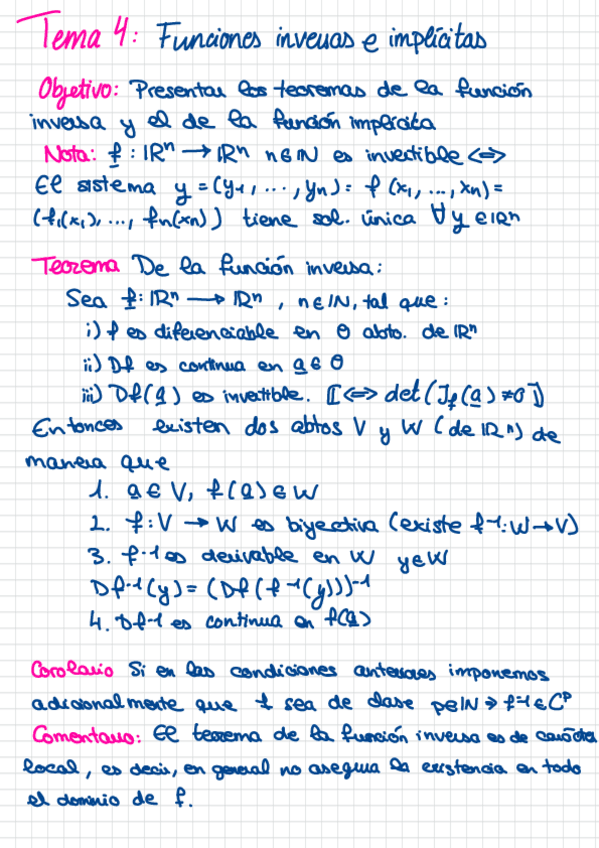 Tema 4: Funciones inversas e implícitas
Objetivo: Presentar los teoremas de la función
inversa y el de la función implícita
Nota: f : IRⁿ → IRⁿ n ∈ IN es invertible <=>
El sistema y = (y₁, ..., yₙ) = f (x₁, ..., xₙ) =
(f₁(x₁), ..., fₙ(xₙ)) tiene sol. única ∀ y ∈ IRⁿ
Teorema De la función inversa:
Sea f: IRⁿ → IRⁿ, n ∈ IN, tal que:
i) f es diferenciable en θ abto. de IRⁿ
ii) Df es continua en a ∈ θ
iii) Df(a) es invertible. ⟦<=> det(J_f(a) ≠ 0⟧
Entonces existen dos abtos V y W (de IRⁿ) de
manera que
1. a ∈ V, f(a) ∈ W
2. f: V → W es biyectiva (existe f⁻¹: W → V)
3. f⁻¹ es derivable en W y ∈ W
Df⁻¹(y) = (Df(f⁻¹(y)))⁻¹
4. Df⁻¹ es continua en f(a)
Corolario Si en las condiciones anteriores imponemos
adicionalmente que f sea de clase p ∈ IN => f⁻¹ ∈ Cᵖ
Comentario: El teorema de la función inversa es de carácter
local, es decir, en general no asegura la existencia en todo
el dominio de f.